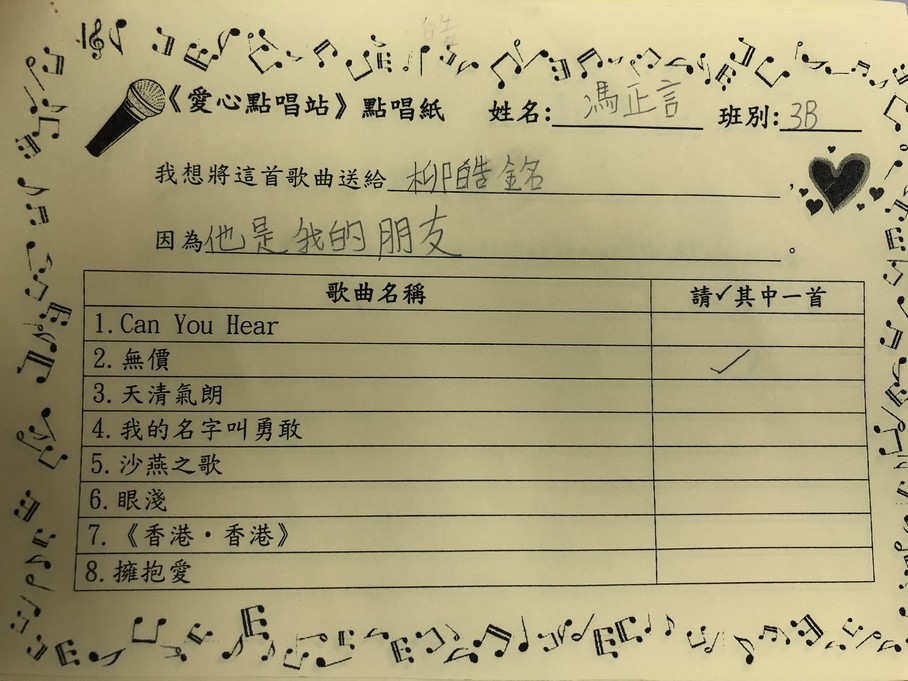 皓
《愛心點唱站》點唱紙 姓名: 馮正言 班別: 3B
我想將這首歌曲送給 柳皓銘 ,
因為他是我的朋友 。
歌曲名稱 請✓其中一首
1. Can You Hear
2. 無價 ✓
3. 天清氣朗
4. 我的名字叫勇敢
5. 沙燕之歌
6. 眼淺
7. 《香港·香港》
8. 擁抱愛